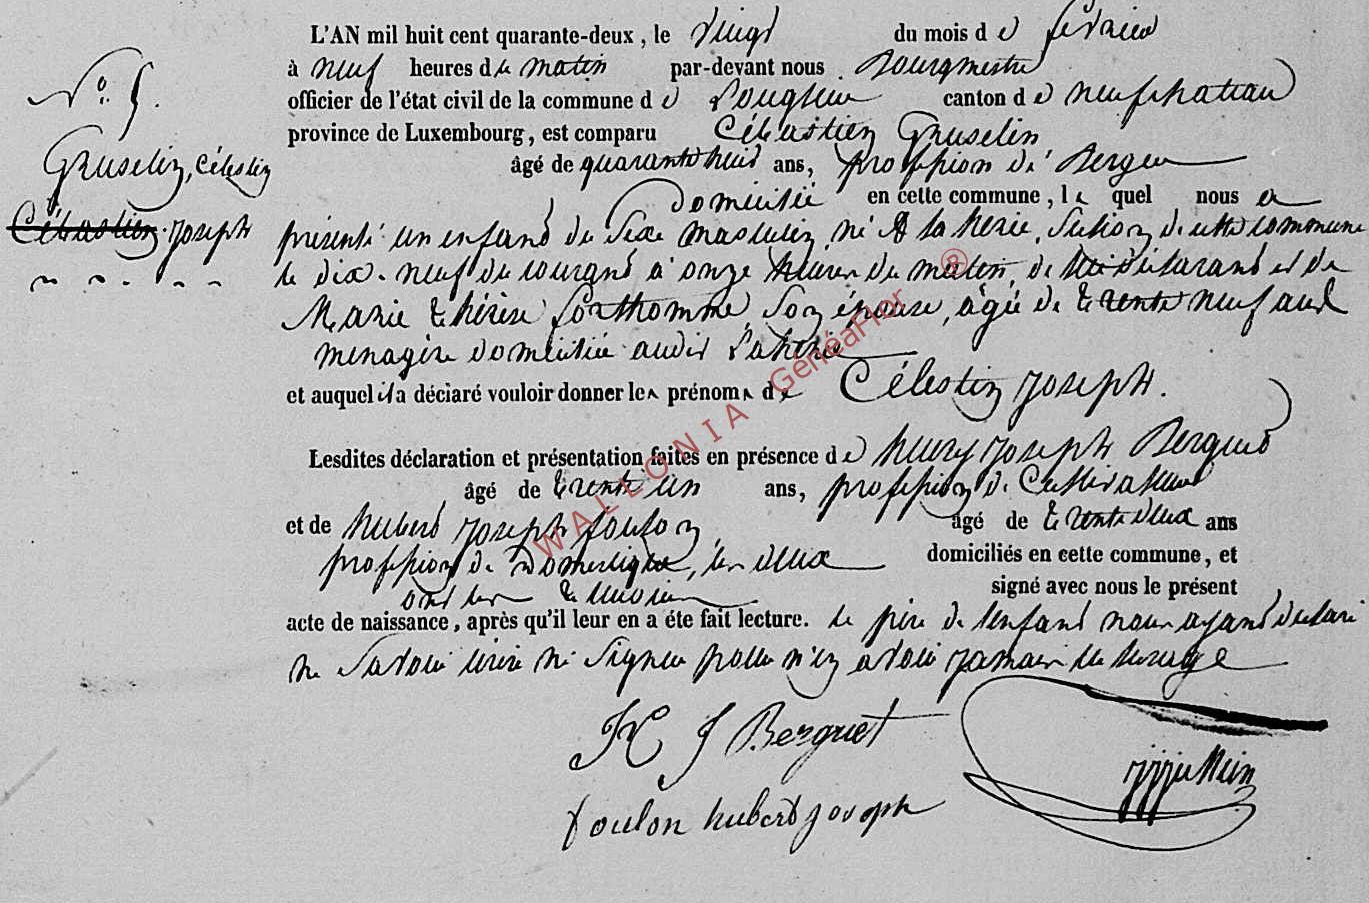 L'AN mil huit cent quarante-deux, le vingt du mois de fevrier
à neuf heures du matin par-devant nous Bourgmestre
N° 5.
officier de l'état civil de la commune de canton de neufchateau
province de Luxembourg, est comparu Célestien Gruselin
Gruselin, Célestin
âgé de quarante huit ans, profession de Berger
domicilié en cette commune, le quel nous a
Célestien Joseph
présenté un enfant de sexe masculin, né à la herie, section de cette commune
le dix-neuf du courant à onze heures du matin, de lui déclarant et de
Marie thérèse Forthomme son épouse, agée de trente neuf ans
menagère domiciliée audit Laherie
et auquel il a déclaré vouloir donner les prénoms de Célestin Joseph.
Lesdites déclaration et présentation faites en présence de henry joseph Berguet
âgé de trente un ans, profession de Cultivateur
et de hubert joseph foulon, âgé de trente deux ans
profession de domestique, les deux domiciliés en cette commune, et
ont les témoins signé avec nous le présent
acte de naissance, après qu'il leur en a éte fait lecture. le père de l'enfant nous ayant déclaré
ne savoir écrire ni signer pour n'en avoir jamais eu l'usage
H J Berguet
foulon hubert joseph
WALLONIA GénéaFlor ®